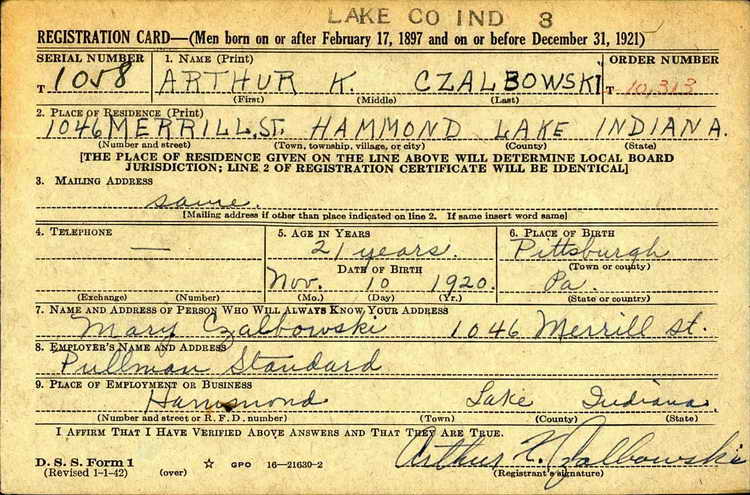 LAKE CO IND 3
REGISTRATION CARD—(Men born on or after February 17, 1897 and on or before December 31, 1921)
SERIAL NUMBER 1. NAME (Print) ORDER NUMBER
T 1058 ARTHUR K. CZALBOWSKI T 10,313
(First) (Middle) (Last)
2. PLACE OF RESIDENCE (Print)
1046 MERRILL, ST. HAMMOND LAKE INDIANA.
(Number and street) (Town, township, village, or city) (County) (State)
[THE PLACE OF RESIDENCE GIVEN ON THE LINE ABOVE WILL DETERMINE LOCAL BOARD
JURISDICTION; LINE 2 OF REGISTRATION CERTIFICATE WILL BE IDENTICAL]
3. MAILING ADDRESS
same.
[Mailing address if other than place indicated on line 2. If same insert word same]
4. TELEPHONE 5. AGE IN YEARS 6. PLACE OF BIRTH
— 21 years. Pittsburgh
DATE OF BIRTH (Town or county)
Nov. 10 1920. Pa.
(Exchange) (Number) (Mo.) (Day) (Yr.) (State or country)
7. NAME AND ADDRESS OF PERSON WHO WILL ALWAYS KNOW YOUR ADDRESS
Mary Czalbowski 1046 Merrill St.
8. EMPLOYER'S NAME AND ADDRESS
Pullman Standard
9. PLACE OF EMPLOYMENT OR BUSINESS
Hammond Lake Indiana.
(Number and street or R. F. D. number) (Town) (County) (State)
I AFFIRM THAT I HAVE VERIFIED ABOVE ANSWERS AND THAT THEY ARE TRUE.
D. S. S. Form 1 GPO 16—21630-2 Arthur K. Czalbowski
(Revised 1-1-42) (over) (Registrant's signature)